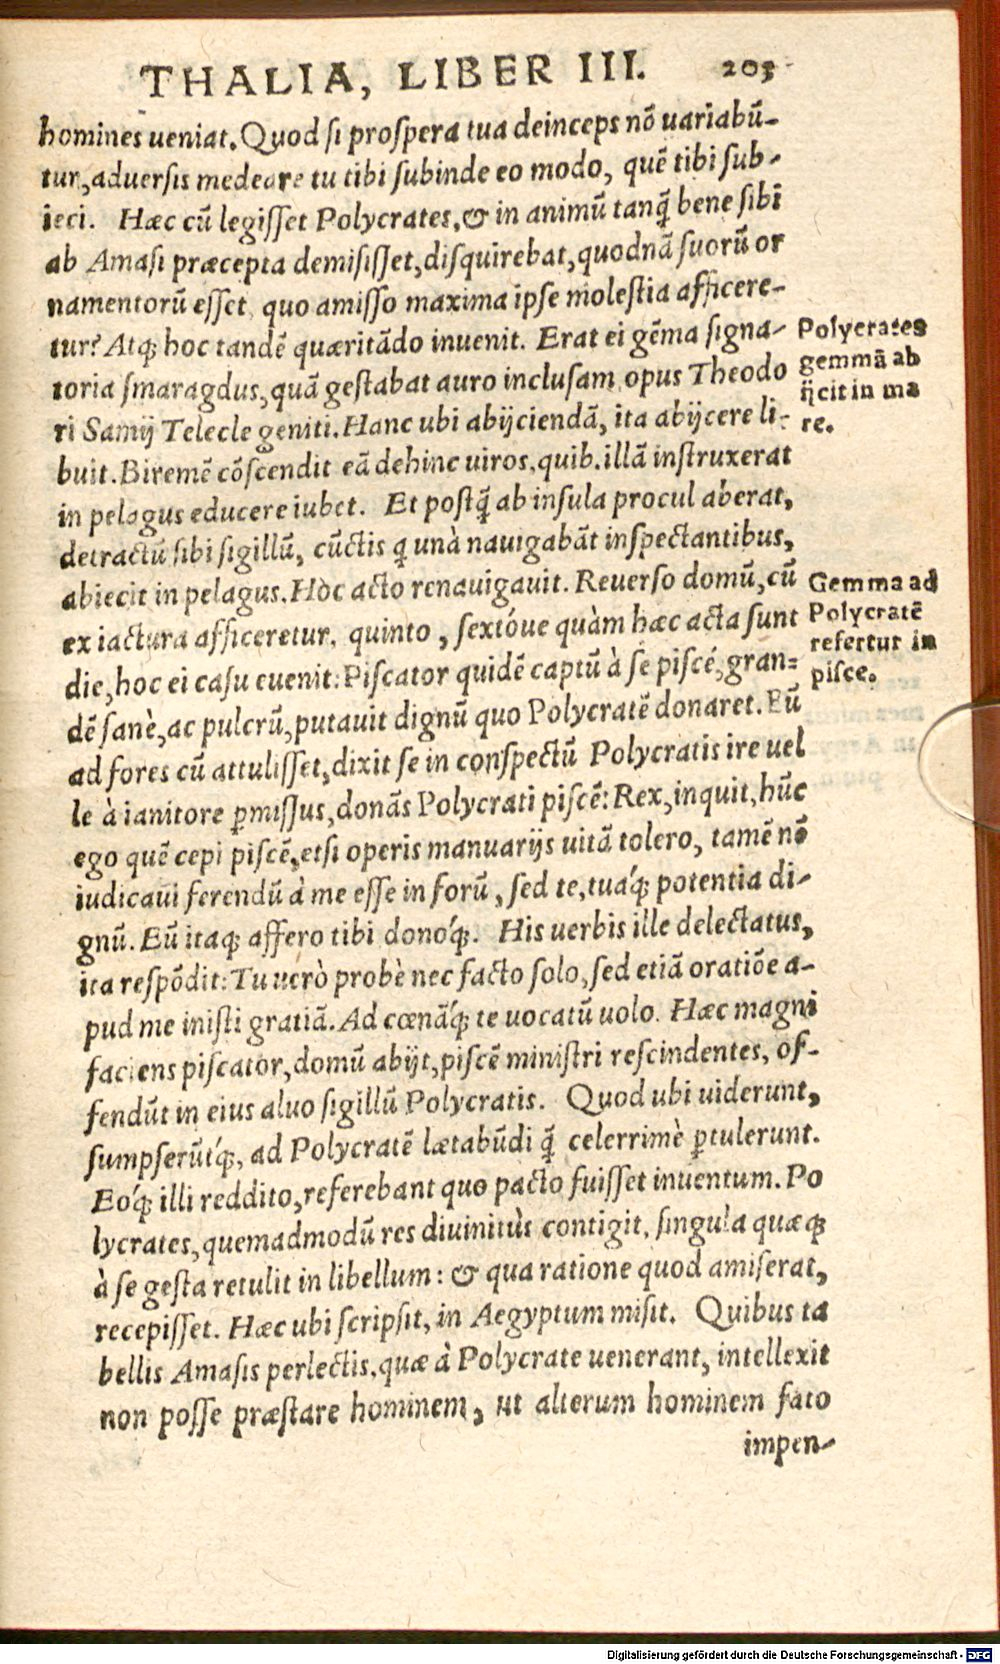 THALIA, LIBER III. 203
homines ueniat. Quod si prospera tua deinceps nō uariabū-
tur, aduersis medeare tu tibi subinde eo modo, quē tibi sub-
ieci. Hæc cū legisset Polycrates, & in animū tanq̃ bene sibi
ab Amasi præcepta demisisset, disquirebat, quodnā suorū or
namentorū esset, quo amisso maxima ipse molestia afficere-
tur? Atq; hoc tandē quæritādo inuenit. Erat ei gēma signa-
toria smaragdus, quā gestabat auro inclusam, opus Theodo
ri Samij Telecle geniti. Hanc ubi abijciendā, ita abijcere li-
buit. Biremē cōscendit eā dehinc uiros, quib. illā instruxerat
in pelagus educere iubet. Et postq̃ ab insula procul aberat,
detractū sibi sigillū, cūctis q unà nauigabāt inspectantibus,
abiecit in pelagus. Hòc acto renauigauit. Reuerso domū, cū
ex iactura afficeretur, quinto, sextóue quàm hæc acta sunt
die, hoc ei casu euenit: Piscator quidē captū à se piscē, gran-
dē sanè, ac pulcrū, putauit dignū quo Polycratē donaret. Eū
ad fores cū attulisset, dixit se in conspectū Polycratis ire uel
le à ianitore ꝑmissus, donās Polycrati piscē: Rex, inquit, hūc
ego quē cepi piscē, etsi operis manuarijs uitā tolero, tamē nō
iudicaui ferendū à me esse in forū, sed te, tuáq; potentia di-
gnū. Eū itaq; affero tibi donóq;. His uerbis ille delectatus,
ita respōdit: Tu uerò probè nec facto solo, sed etiā oratiōe a-
pud me inisti gratiā. Ad cœnāq́; te uocatū uolo. Hæc magni
faciens piscator, domū abijt, piscē ministri rescindentes, of-
fendūt in eius aluo sigillū Polycratis. Quod ubi uiderunt,
sumpserūtq́;, ad Polycratē lætabūdi q̃ celerrimè ꝑtulerunt.
Eoq́; illi reddito, referebant quo pacto fuisset inuentum. Po
lycrates, quemadmodū res diuinitùs contigit, singula quæq;
à se gesta retulit in libellum: & qua ratione quod amiserat,
recepisset. Hæc ubi scripsit, in Aegyptum misit. Quibus ta
bellis Amasis perlectis, quæ à Polycrate uenerant, intellexit
non posse præstare hominem, ut alterum hominem fato
impen-
Polycrates
gemmā ab
ijcit in ma
re.
Gemma ad
Polycratē
refertur in
pisce.
Digitalisierung gefördert durch die Deutsche Forschungsgemeinschaft - DFG